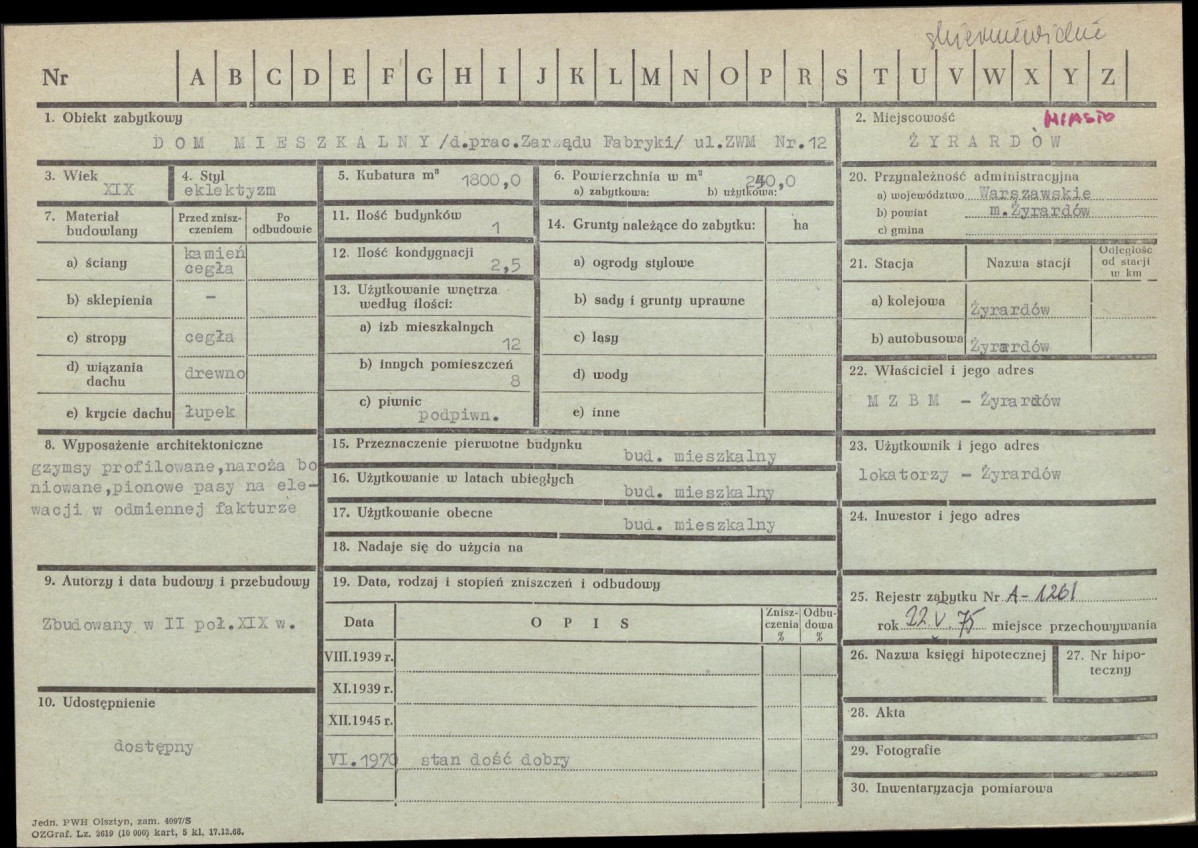 skierniewickie
Nr A B C D E F G H I J K L M N O P R S T U V W X Y Z
1. Obiekt zabytkowy
DOM MIESZKALNY /d.prac.Zarządu Fabryki/ ul.ZWM Nr.12
2. Miejscowość MIASTO
ŻYRARDÓW
3. Wiek
XIX
4. Styl
eklektyzm
5. Kubatura m³ 1800,0
6. Powierzchnia w m²
a) zabytkowa: b) użytkowa: 240,0
7. Materiał budowlany
Przed zniszczeniem
Po odbudowie
a) ściany kamień
cegła
b) sklepienia –
c) stropy cegła
d) wiązania dachu drewno
e) krycie dachu łupek
8. Wyposażenie architektoniczne
gzymsy profilowane,naroża bo
niowane,pionowe pasy na ele-
wacji w odmiennej fakturze
9. Autorzy i data budowy i przebudowy
Zbudowany w II poł.XIX w.
10. Udostępnienie
dostępny
11. Ilość budynków 1
12. Ilość kondygnacji 2,5
13. Użytkowanie wnętrza
według ilości:
a) izb mieszkalnych 12
b) innych pomieszczeń 8
c) piwnic podpiwn.
14. Grunty należące do zabytku: ha
a) ogrody stylowe
b) sady i grunty uprawne
c) lasy
d) wody
e) inne
15. Przeznaczenie pierwotne budynku
bud. mieszkalny
16. Użytkowanie w latach ubiegłych
bud. mieszkalny
17. Użytkowanie obecne
bud. mieszkalny
18. Nadaje się do użycia na
19. Data, rodzaj i stopień zniszczeń i odbudowy
Data OPIS Zniszczenia % Odbudowa %
VIII.1939 r.
XI.1939 r.
XII.1945 r.
VI.1970 stan dość dobry
20. Przynależność administracyjna
a) województwo Warszawskie
b) powiat m.Żyrardów
c) gmina
21. Stacja Nazwa stacji Odległość od stacji w km
a) kolejowa Żyrardów
b) autobusowa Żyrardów
22. Właściciel i jego adres
MZBM – Żyrardów
23. Użytkownik i jego adres
lokatorzy – Żyrardów
24. Inwestor i jego adres
25. Rejestr zabytku Nr A-1261
rok 22.V.75 miejsce przechowywania
26. Nazwa księgi hipotecznej
27. Nr hipo-
teczny
28. Akta
29. Fotografie
30. Inwentaryzacja pomiarowa
Jedn. PWH Olsztyn, zam. 4097/S
OZGraf. Lz. 2619 (10 000) kart, 5 kl. 17.12.68.